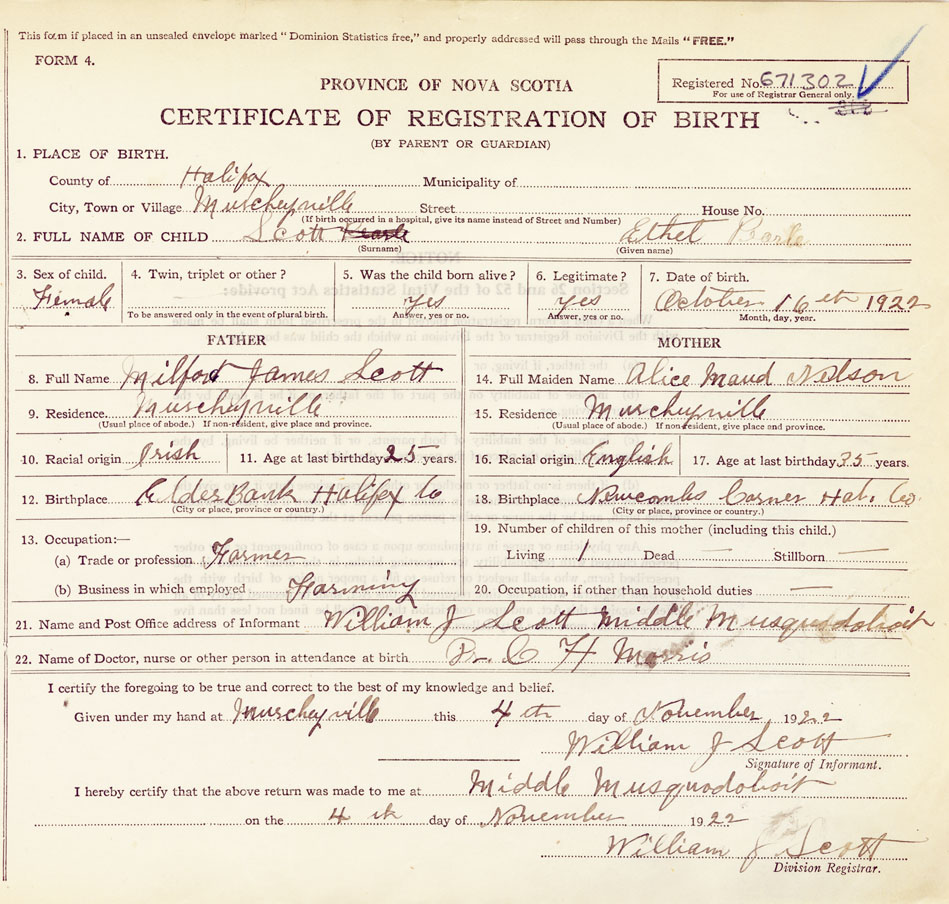 This form if placed in an unsealed envelope marked "Dominion Statistics free," and properly addressed will pass through the Mails "FREE."
FORM 4.
Registered No. 671302
For use of Registrar General only.
PROVINCE OF NOVA SCOTIA
CERTIFICATE OF REGISTRATION OF BIRTH
(BY PARENT OR GUARDIAN)
1. PLACE OF BIRTH.
County of Halifax Municipality of
City, Town or Village Murcheyville Street House No.
(If birth occurred in a hospital, give its name instead of Street and Number)
2. FULL NAME OF CHILD Scott Ethel Pearle
(Surname) (Given name)
3. Sex of child. 4. Twin, triplet or other? 5. Was the child born alive? 6. Legitimate? 7. Date of birth.
Female yes yes October 16th 1922
To be answered only in the event of plural birth. Answer, yes or no. Answer, yes or no. Month, day, year.
FATHER MOTHER
8. Full Name Milford James Scott 14. Full Maiden Name Alice Maud Nelson
9. Residence. Murcheyville 15. Residence Murcheyville
(Usual place of abode.) If non-resident, give place and province. (Usual place of abode.) If non-resident, give place and province.
10. Racial origin Irish 11. Age at last birthday 25 years. 16. Racial origin English 17. Age at last birthday 35 years.
12. Birthplace Elder Bank Halifax Co 18. Birthplace Newcombs Corner Hal. Co.
(City or place, province or country.) (City or place, province or country.)
13. Occupation:— 19. Number of children of this mother (including this child.)
(a) Trade or profession Farmer Living 1 Dead — Stillborn —
(b) Business in which employed Farming 20. Occupation, if other than household duties —
21. Name and Post Office address of Informant William J Scott Middle Musquodoboit
22. Name of Doctor, nurse or other person in attendance at birth Dr. C H Morris
I certify the foregoing to be true and correct to the best of my knowledge and belief.
Given under my hand at Murcheyville this 4th day of November, 1922
William J Scott
Signature of Informant.
I hereby certify that the above return was made to me at Middle Musquodoboit
on the 4th day of November 1922
William J Scott
Division Registrar.